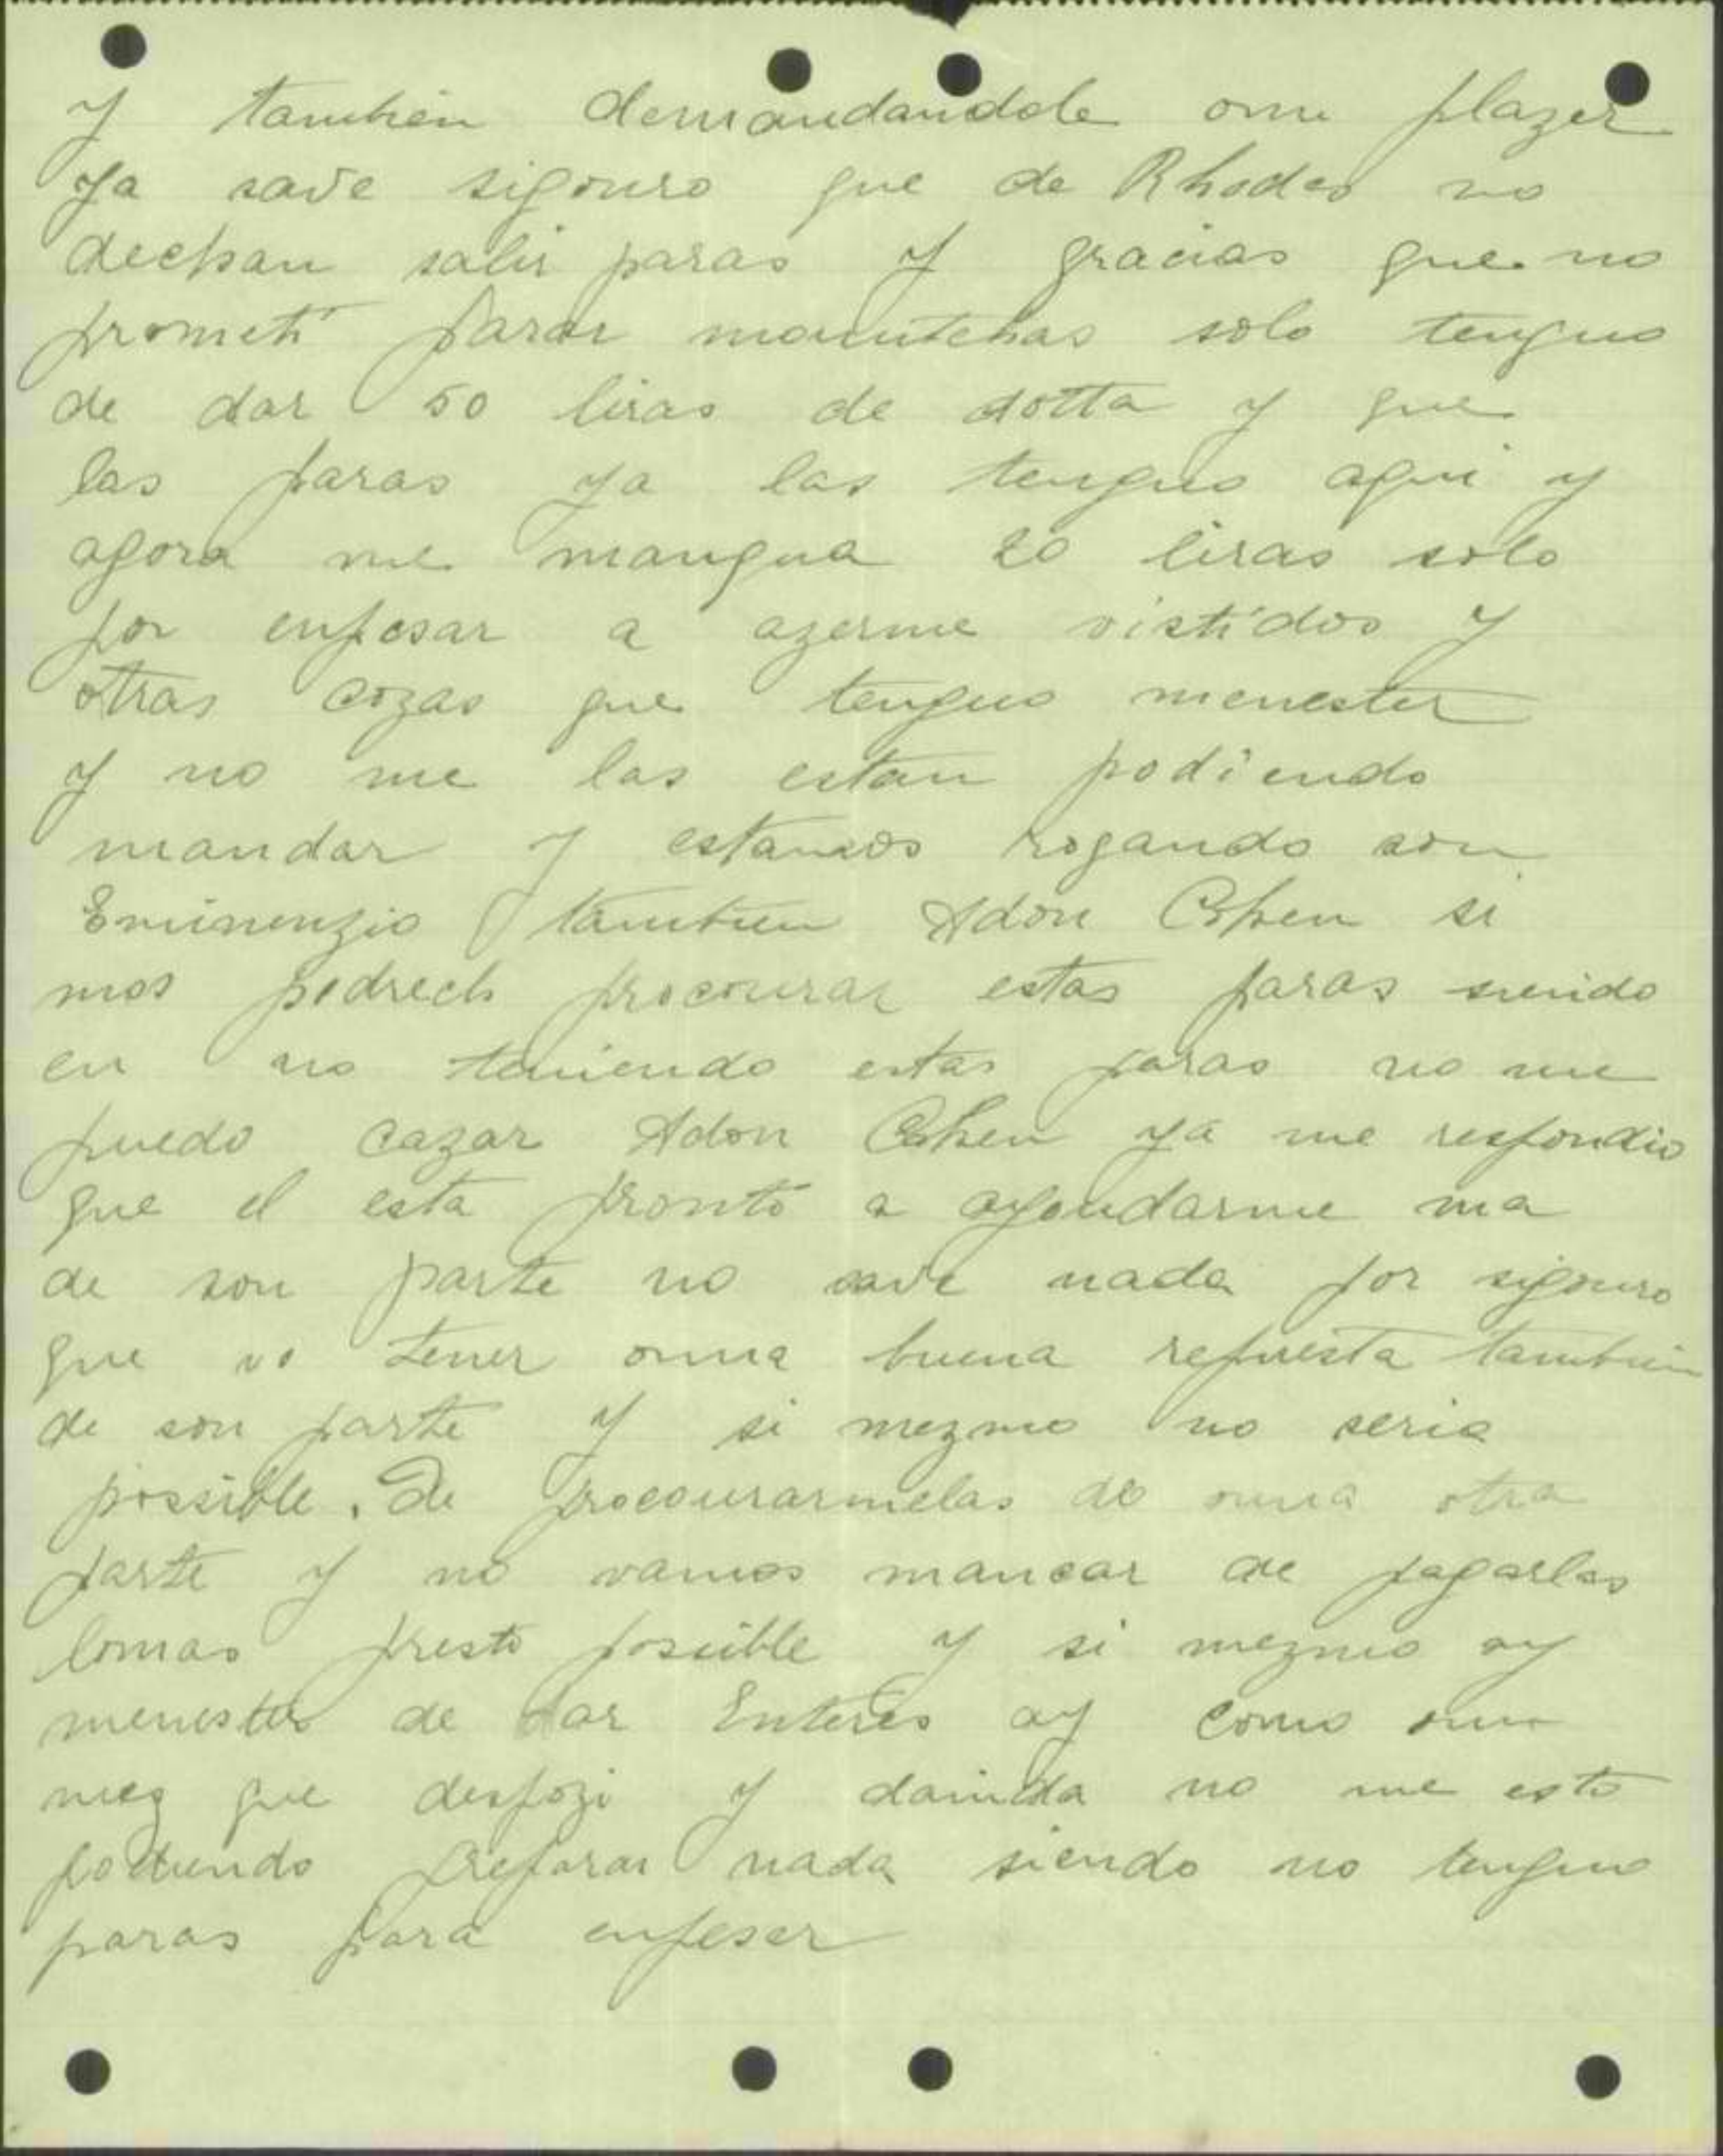 y tambien demandandole oun plazer
ya save sigouro que de Rhodes no
dechan salir paras y gracias que no
prometi paras mountchas solo tenguo
de dar 50 liras de dotta y que
las paras ya las tenguo aqui y
agora me mangua 20 liras solo
por enpesar a azerme vistidos y
otras cozas que tenguo menester
y no me las estan podiendo
mandar y estamos rogando son
Eminenzio tambien Adon Cohen si
mos podrech procourar estas paras siendo
en no teniendo estas paras no me
puedo cazar Adon Cohen ya me respondio
que el esta pronto a ayoudarme ma
de son parte no save nada por sigouro
que vo tener ouna buena repuesta tambien
de son parte y si mezmo no seria
possible. De procourarmelas de ouna otra
parte y no vamos mancar de pagarlas
lomas presto possible y si mezmo ay
menester de dar Enteres ay como oun
mez que despozi y dainda no me esto
podiendo preparar nada siendo no tenguo
paras para enpeser